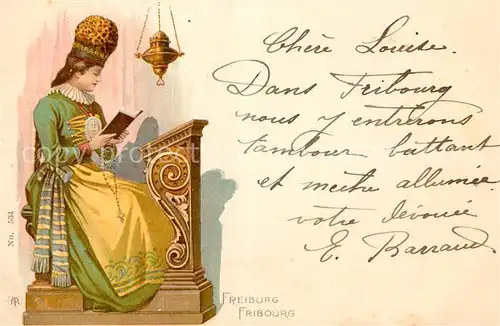 Chère Louise.
Dans Fribourg
nous y entrerons
tambour battant
et mèche allumée
votre dévouée
E. Barraud
No. 534
FREIBURG
FRIBOURG